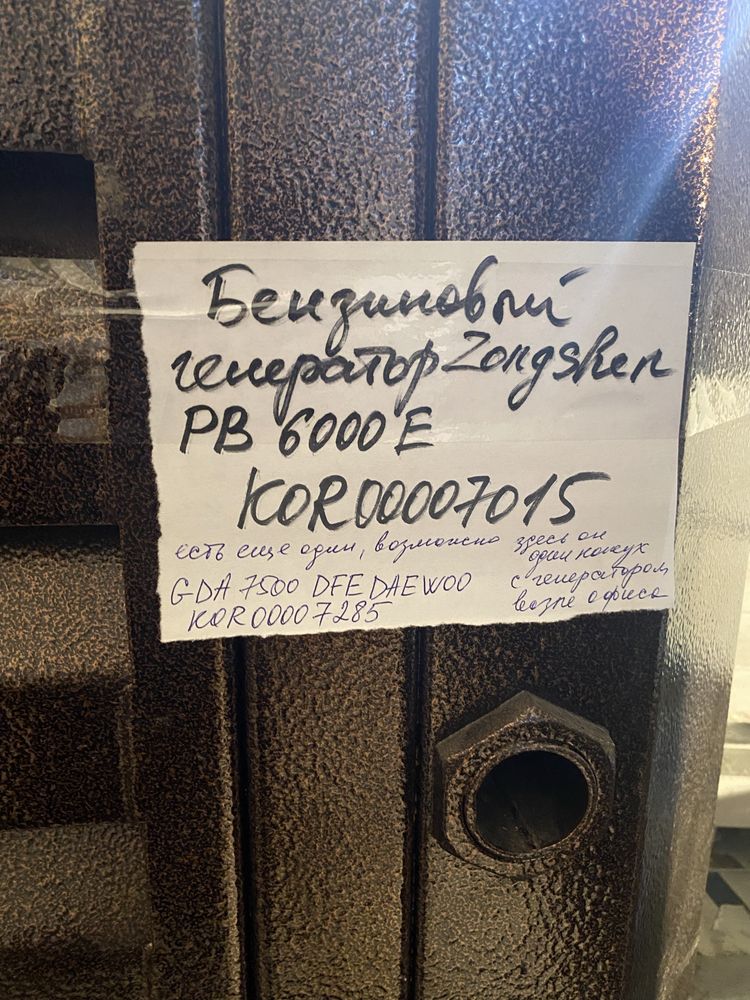 Бензиновый
генератор Zongshen
PB 6000 E
KOR00007015
есть еще один, возможно здесь он
один кожух
GDA 7500 DFE DAEWOO с генератором
KOR00007285 возле офиса